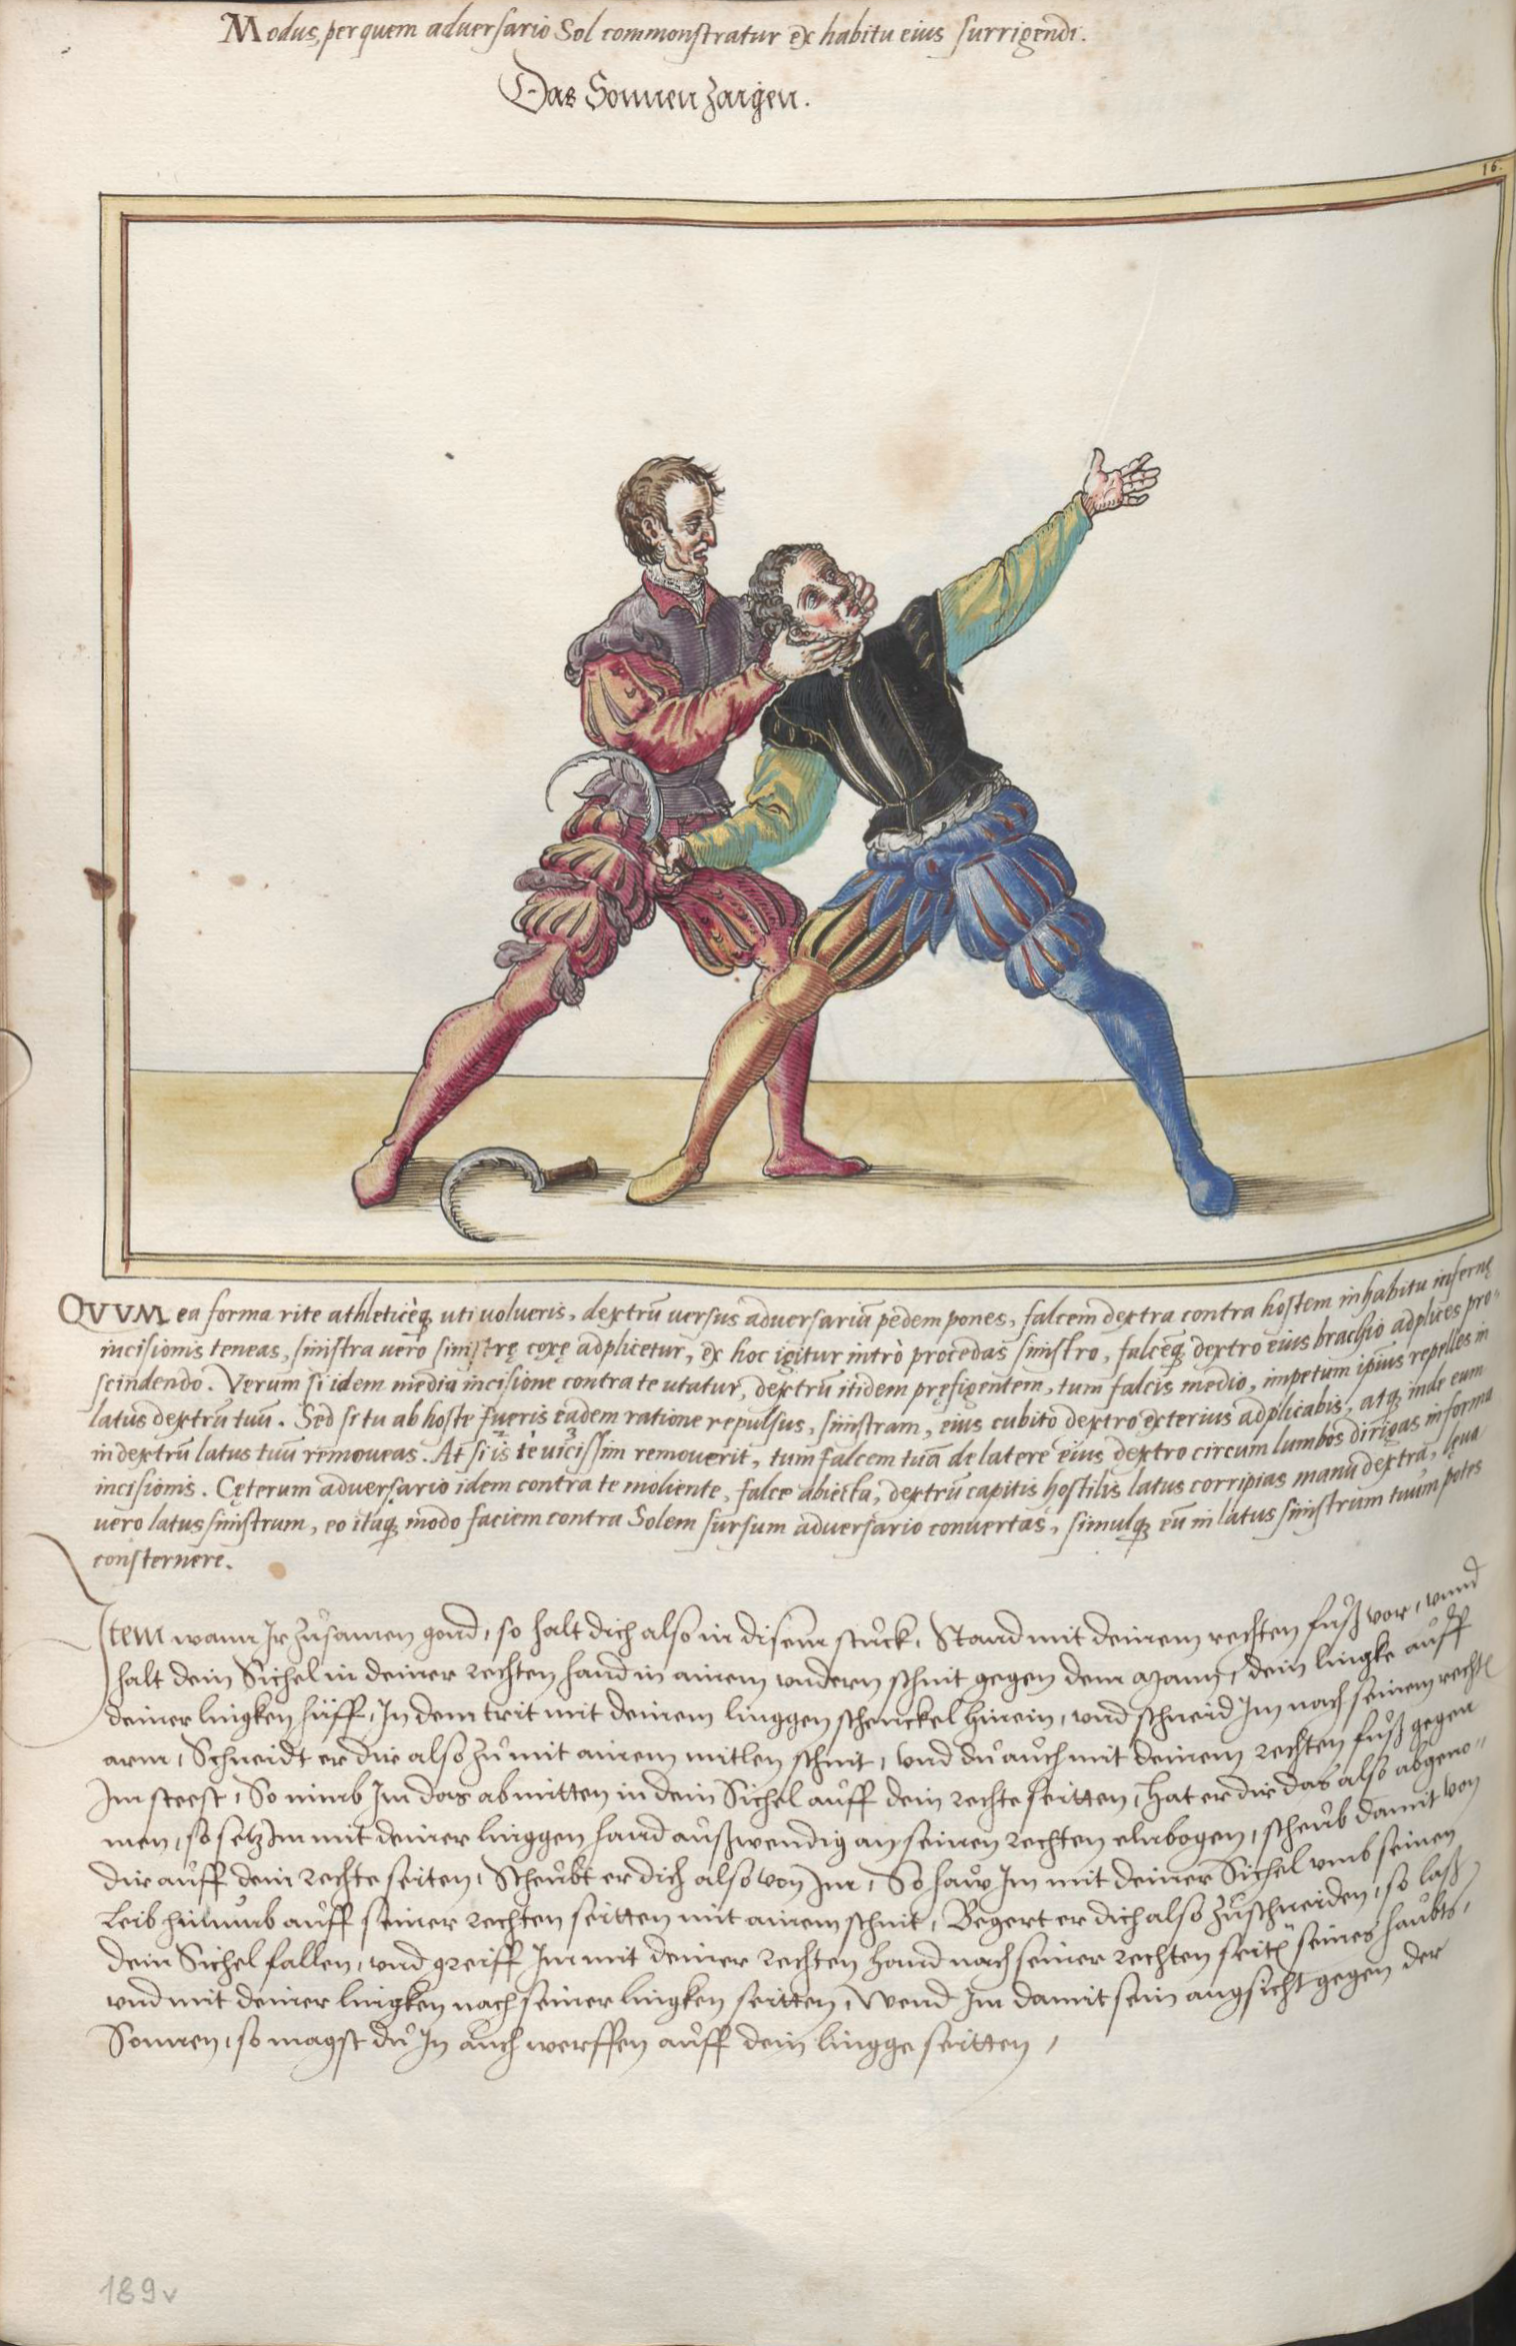 Modus, per quem adversario Sol commonstratur ex habitu eius surrigendi.
Das Sonnen zaigen.
16.
QVVM ea forma rite athleticèq; uti volueris, dextrū versus adversariū pedem pones, falcem dextra contra hostem in habitu infernę
incisionis teneas, sinistra vero sinistrę coxę adplicetur, ex hoc igitur intrò procedas sinistro, falcęq; dextro eius brachio adplices pro-
scindendo. Verum si idem media incisione contra te utatur, dextrū itidem pręfigentem, tum falcis medio, impetum ipsius repelles in
latus dextrū tuū. Sed si tu ab hoste fueris eadem ratione repulsus, sinistram, eius cubito dextro exterius adplicabis, atq; inde eum
in dextrū latus tuū removeas. At si is te vicissim removerit, tum falcem tuā de latere eius dextro circum lumbos dirigas in forma
incisionis. Cęterum adversario idem contra te moliente, falce abiecta, dextrū capitis hostilis latus corripias manu dextra, lęva
vero latus sinistrum, eo itaq; modo faciem contra Solem sursum adversario convertas, simulq; eū in latus sinistrum tuum potes
consternere.
Item wann Ir zůsamen gond, so halt dich also in disem stuck, Stand mit deinem rechten fůß vor, vnnd
halt dein Sichel in deiner rechten hand in ainem vndern schnit gegen dem Mann, dein lingke auff
deiner lingken hüff, In dem trit mit deinem linggen schenckel hinein, vnd schneid Im nach seinem rechtē
arm, Schneidt er dir also zů mit ainem mitlen schnit, vnd du auch mit deinem rechten fůß gegen
Im steest, So nimb Im das ab mitten in dein Sichel auff dein rechte seitten, Hat er dir das also abgeno-
men, so setz Im mit deiner linggen hand außwendig an seinen rechten elnbogen, scheub damit von
dir auff dein rechte seiten, Scheubt er dich also von Im, So haw Im mit deiner Sichel vmb seinen
Leib hinumb auff seiner rechten seitten mit ainem schnit, Begert er dich also zůschneiden, so laß
dein Sichel fallen, vnd greiff Im mit deiner rechten hand nach seiner rechten seitē seines haubts,
vnd mit deiner lingken nach seiner lingken seitten, Wend Im damit sein angsicht gegen der
Sonnen, so magst du In auch werffen auff dein lingge seitten,
189v